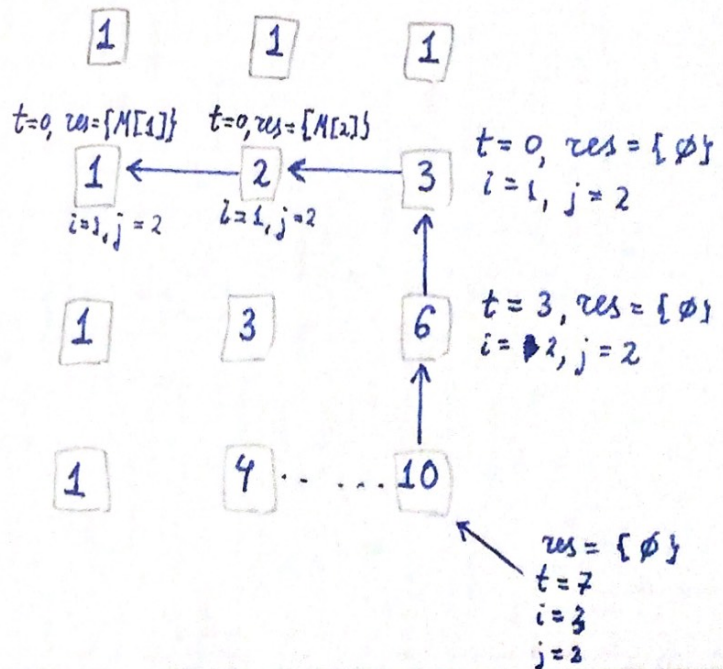 1 1 1
t=0, res={M[1]} t=0, res={M[2]}
1 2 3 t=0, res={ø}
i=1, j=2 i=1, j=2 i=1, j=2
1 3 6 t=3, res={ø}
i=2, j=2
1 4 ..... 10
res={ø}
t=7
i=3
j=2